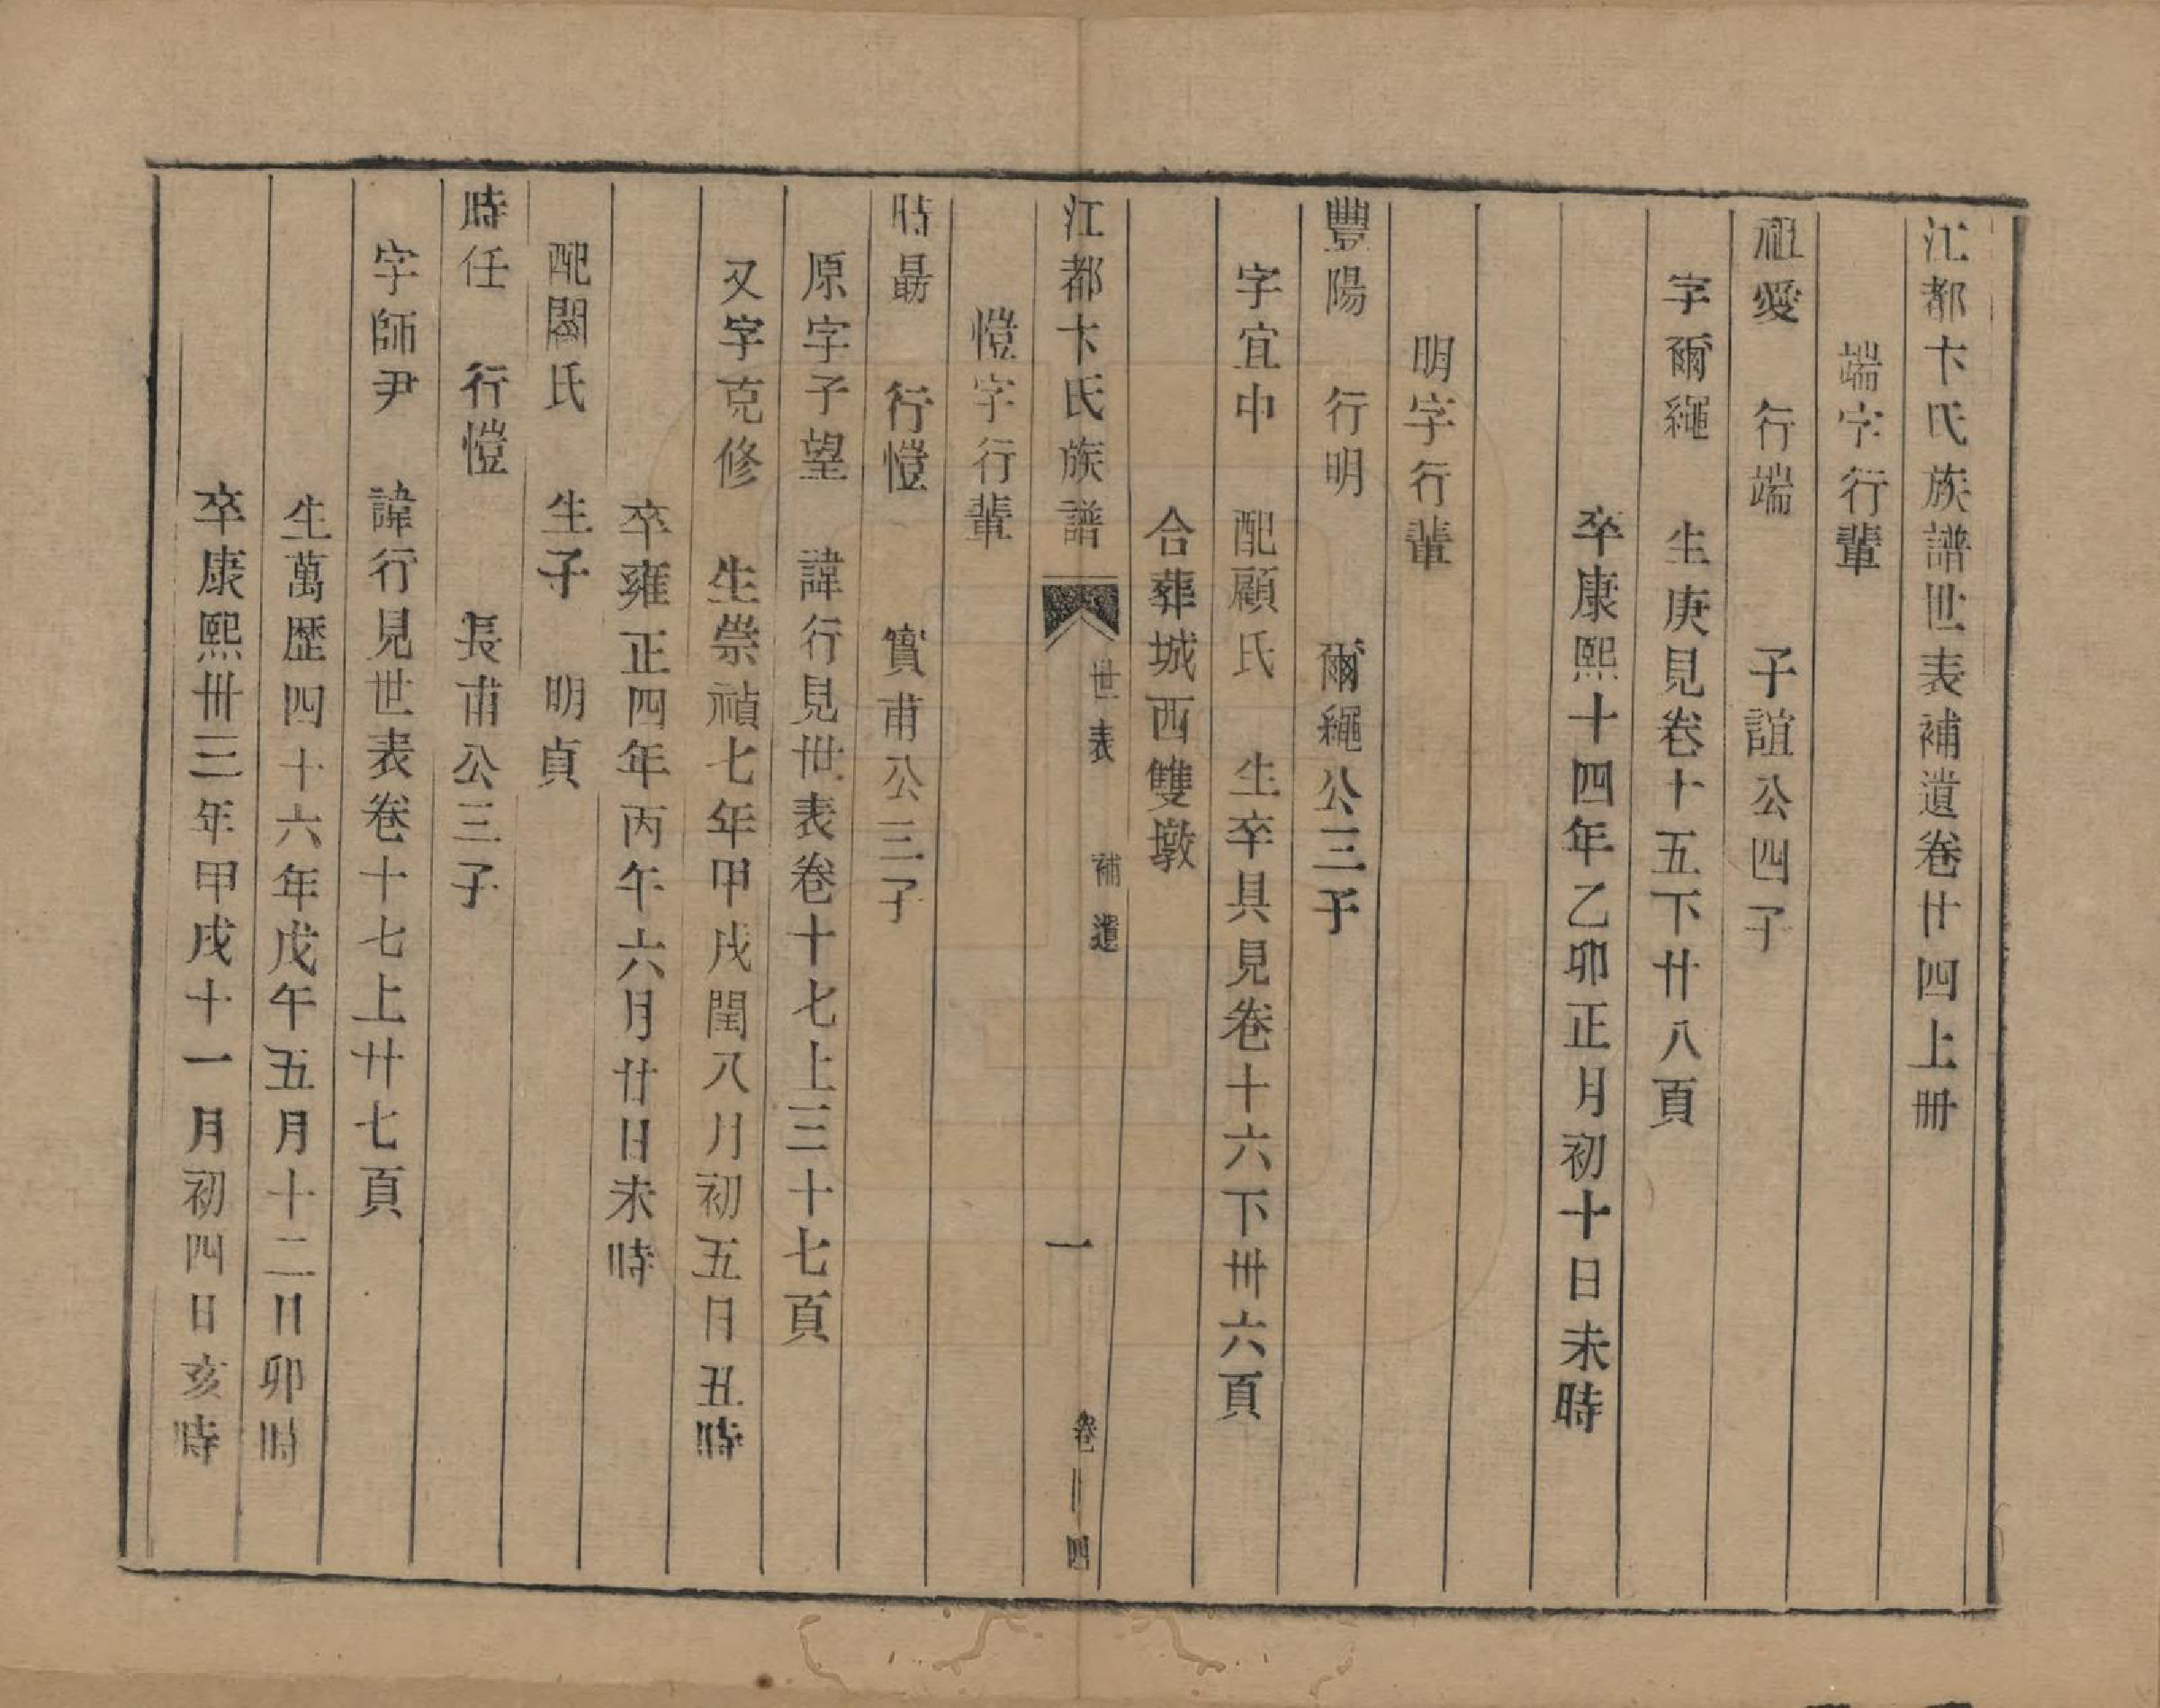 江都卞氏族譜世表補遺卷廿四上冊
端字行輩
祖愛　行端　子誼公四子
字爾繩　生庚見卷十五下廿八頁
卒康熙十四年乙卯正月初十日未時
明字行輩
豐陽　行明　爾繩公三子
字宜中　配顧氏　生卒具見卷十六下卅六頁
合葬城西雙墩
江都卞氏族譜　世表　補遺　一　卷廿四
愷字行輩
時勗　行愷　實甫公三子
原字子望　諱行見世表卷十七上三十七頁
又字克修　生崇禎七年甲戌閏八月初五日丑時
卒雍正四年丙午六月廿日未時
配閻氏　生子　明貞
時任　行愷　長甫公三子
字師尹　諱行見世表卷十七上廿七頁
生萬歷四十六年戊午五月十二日卯時
卒康熙卅三年甲戌十一月初四日亥時